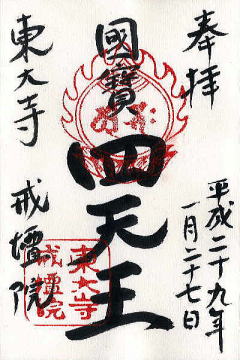 奉拝
平成二十九年
一月二十七日
國寶
四天王
東大寺
戒壇院
東大寺
戒壇院